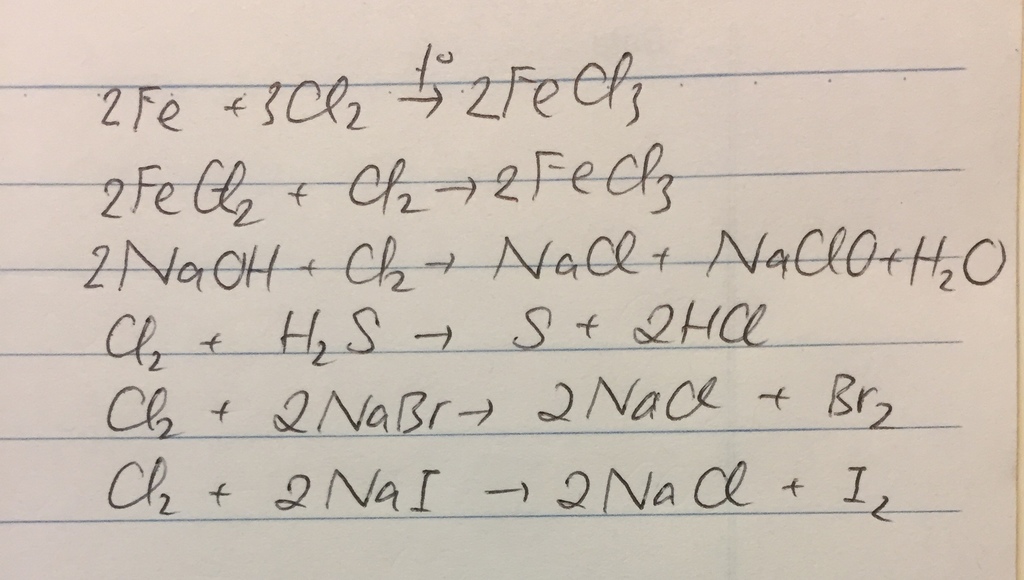 2Fe + 3Cl₂ →t° 2FeCl₃
2FeCl₂ + Cl₂ → 2FeCl₃
2NaOH + Cl₂ → NaCl + NaClO + H₂O
Cl₂ + H₂S → S + 2HCl
Cl₂ + 2NaBr → 2NaCl + Br₂
Cl₂ + 2NaI → 2NaCl + I₂